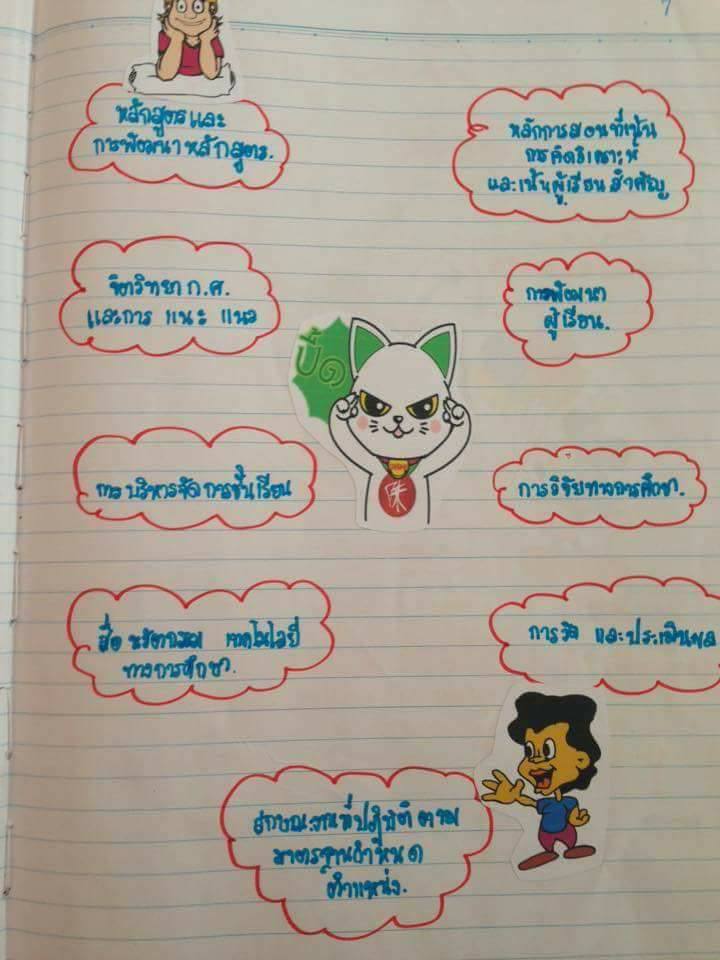 7
หลักสูตรและ
การพัฒนาหลักสูตร.
หลักการสอนที่เน้น
การคิดวิเคราะห์
และเน้นผู้เรียนสำคัญ
จิตวิทยา ก.ศ.
และการ แนะ แนว
การพัฒนา
ผู้เรียน.
ปี๊ด
การบริหารจัดการชั้นเรียน
การวิจัยทางการศึกษา.
สื่อ นวัตกรรม เทคโนโลยี
ทางการศึกษา.
การวัด และประเมินผล
ลักษณะงานที่ปฏิบัติ ตาม
มาตรฐานกำหนด
ตำแหน่ง.